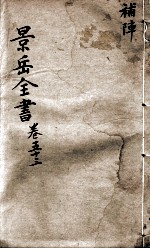 補陣
景岳全書
卷五十三